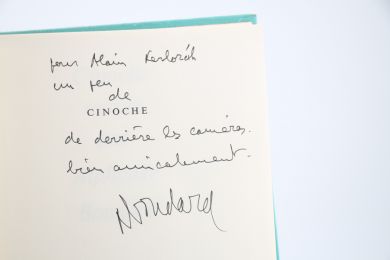 pour Alain Kerloréh
un peu
de
CINOCHE
de derrière les caméras.
bien amicalement.